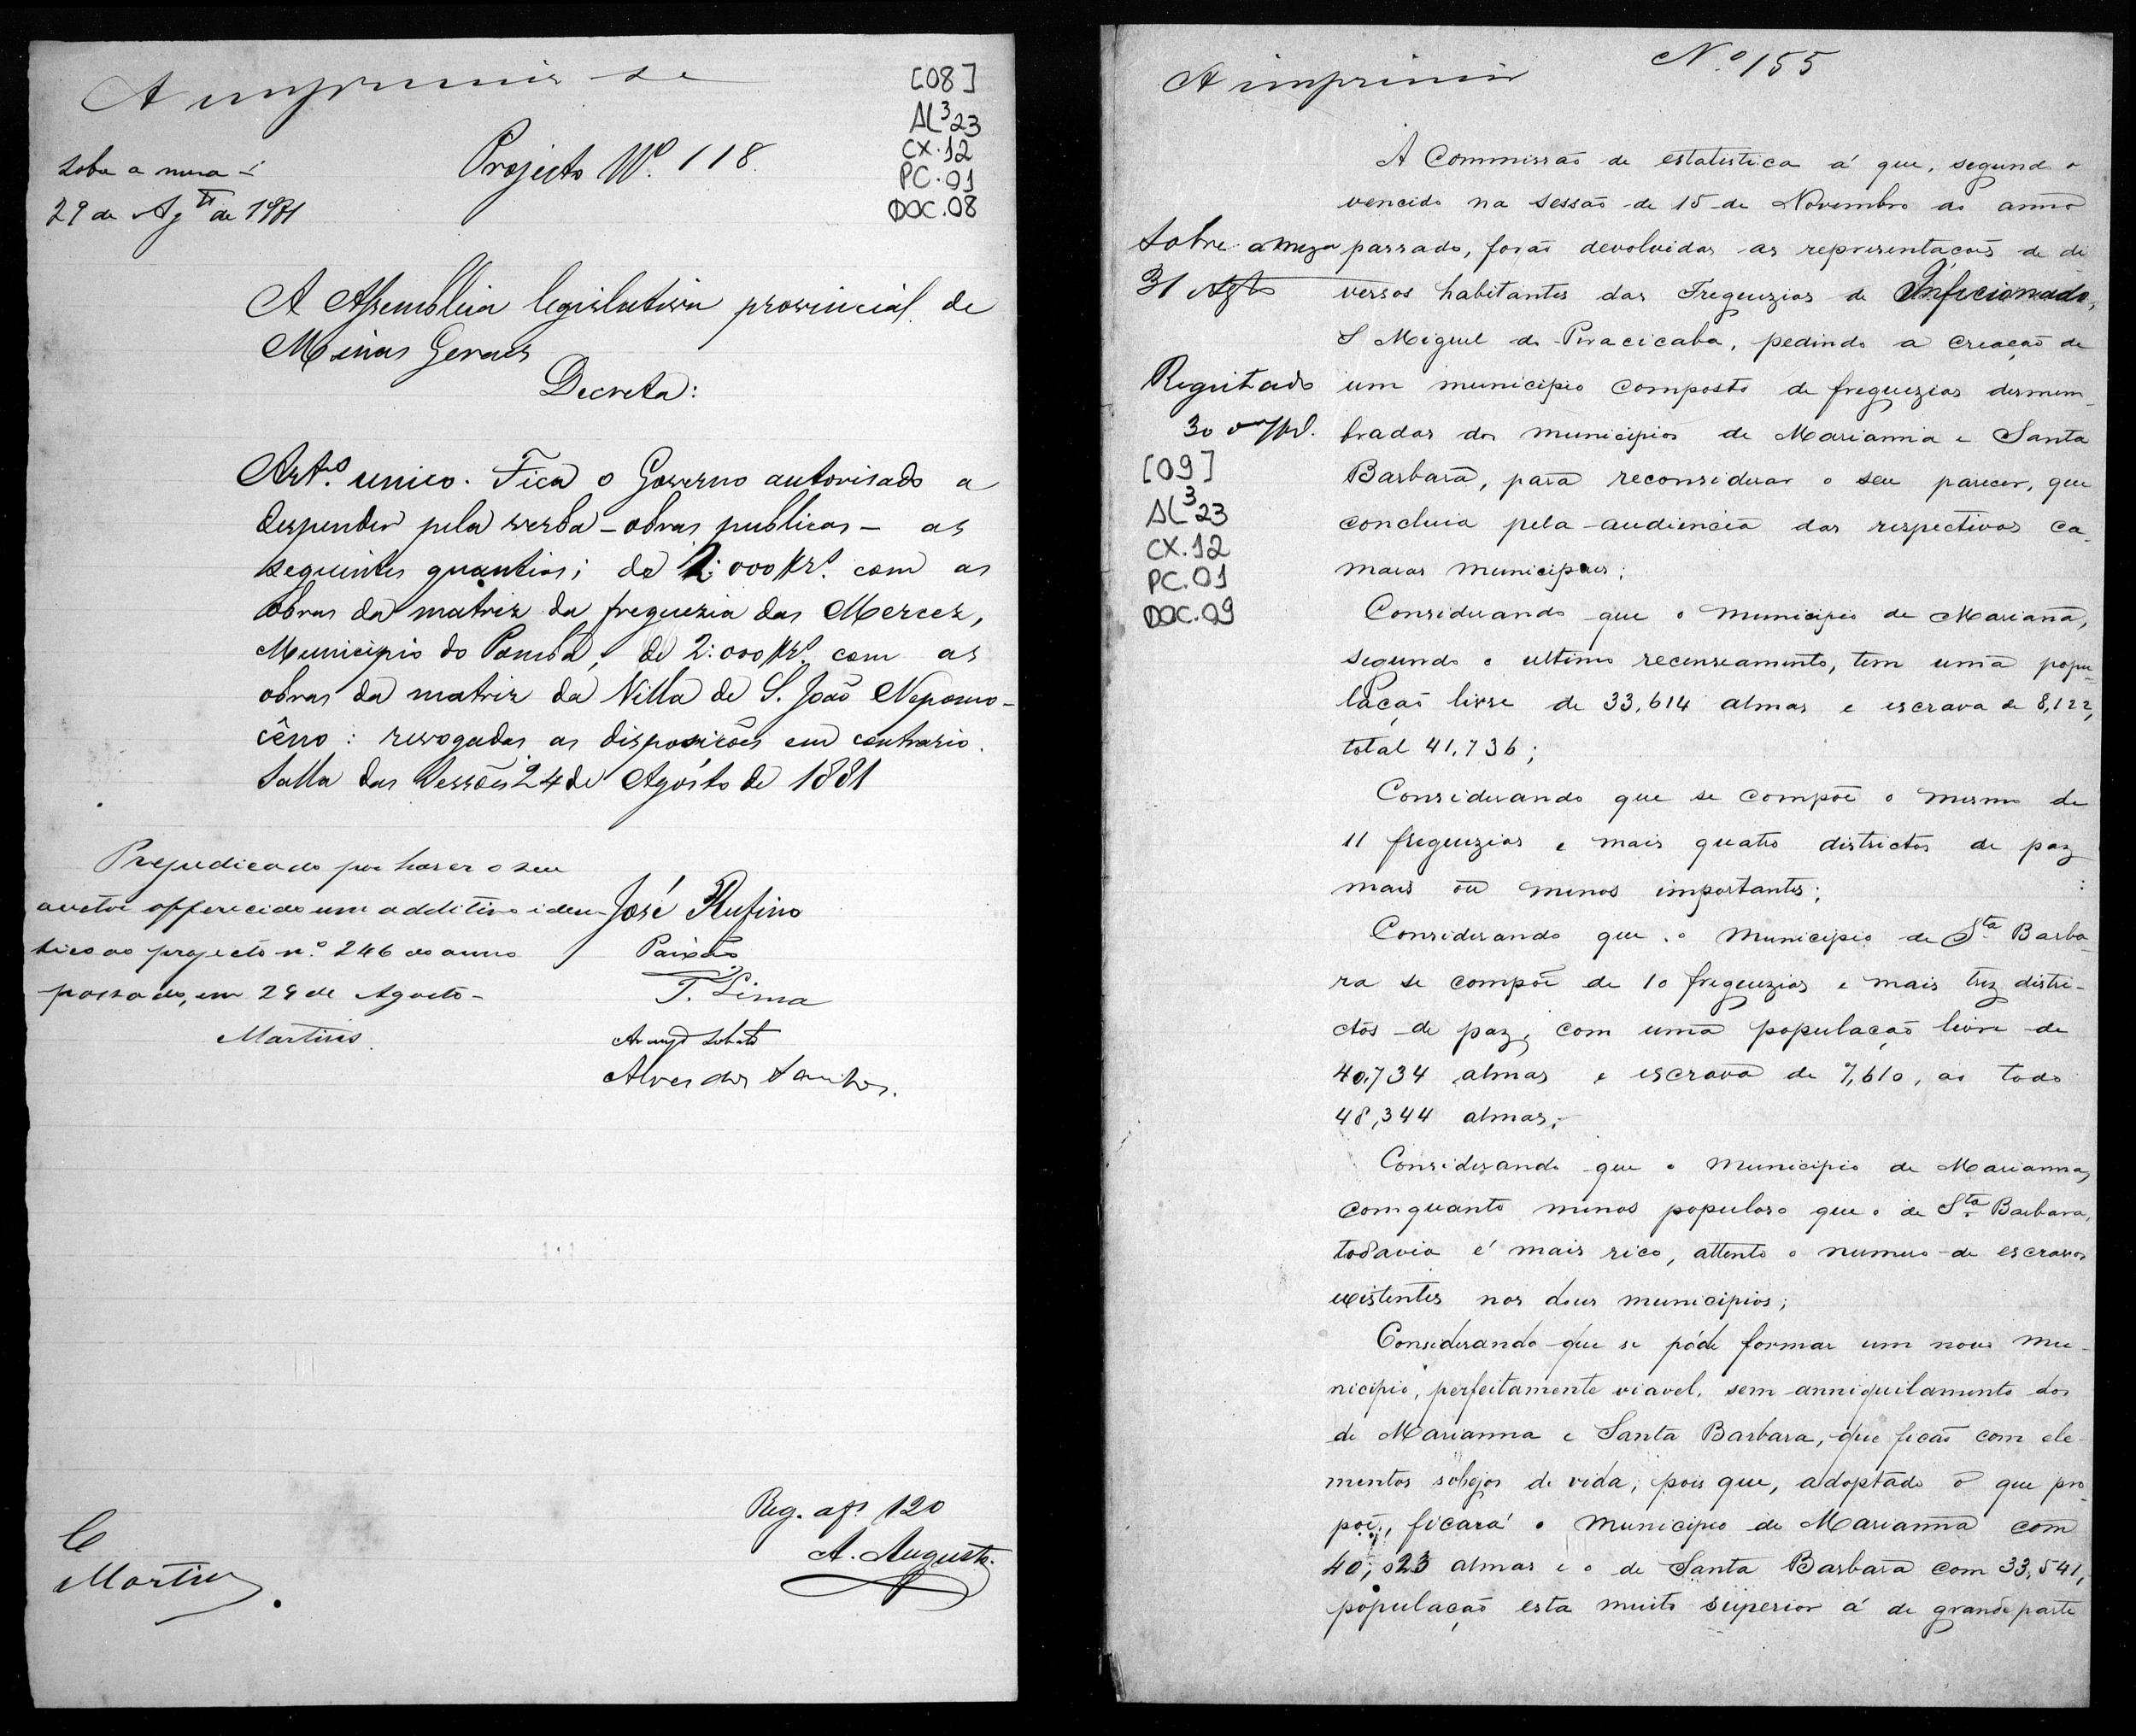 A imprimir se
[08]
AL³23
CX.12
PC.01
DOC.08
Projecto Nº. 118.
Sobre a mesa
29 de Ag.to de 1881
A Assembleia legislativa provincial de
Minas Geraes
Decreta:
Artº. unico. Fica o Governo autorisado a
despender pela verba - obras publicas - as
seguintes quantias; de 2:000$rs. com as
obras da matriz da freguezia das Mercez,
Municipio do Pomba, de 2:000$rs. com as
obras da matriz da Villa de S. João Nepomo-
cêno: revogadas as disposições em contrario.
Salla das Sessões 24 de Agosto de 1881
Prejudicado por haver o seu
auctor offerecido um additivo iden-
tico ao projecto n.º 246 do anno
passado, em 29 de Agosto -
Martins.
José Rufino
Paixão
T. Lima
Araujo Lobato
Alves dos Santos.
Reg. a fs. 120
A. Augusto.
C
Martins
Nº 155
A imprimir
A Commissão de estatistica á que, segundo o
vencido na sessão de 15 de Novembro do anno
passado, forão devolvidas as representações de di
versos habitantes das Freguezias de Inficionado,
S Miguel do Piracicaba, pedindo a creação de
um municipio composto de freguezias desmem-
bradas dos municipios de Marianna e Santa
Barbara, para reconsiderar o seu parecer, que
concluia pela audiencia das respectivas ca-
maras municipaes;
Sobre a meza
31 Agto
Regeitado
30
[09]
AL³23
CX.12
PC.01
DOC.09
Considerando que o municipio de Mariana,
segundo o ultimo recenseamento, tem uma popu-
lação livre de 33,614 almas e escrava de 8,122,
total 41,736;
Considerando que se compõe o mesmo de
11 freguezias e mais quatro districtos de paz
mais ou menos importantes;
Considerando que o municipio de Sta Barba
ra se compõe de 10 freguezias e mais trez distri-
ctos de paz, com uma população livre de
40,734 almas e escrava de 7,610, ao todo
48,344 almas;
Considerando que o municipio de Marianna,
comquanto menos populoso que o de Sta Barbara,
todavia é mais rico, attento o numero de escravos
existentes nos dous municipios;
Considerando que se póde formar um novo mu-
nicipio, perfeitamente viavel, sem anniquilamento dos
de Marianna e Santa Barbara, que ficão com ele-
mentos sobejos de vida; pois que, adoptado o que pro-
põe, ficará o municipio de Marianna com
40,023 almas e o de Santa Barbara com 33,541,
população esta muito superior á de grande parte